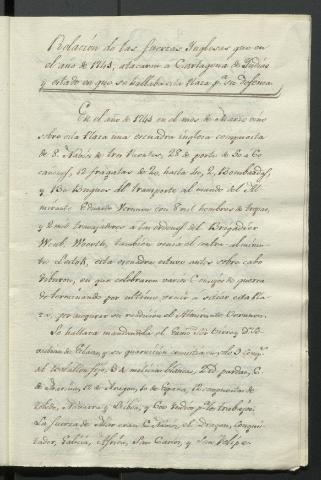 Relación de las fuerzas Ynglesas que en
el año de 1743, atacaron a Cartagena de Yndias
y estado en que se hallaba esta Plaza pª su defensa.
En el año de 1743 en el mes de Marzo vino
sobre esta Plaza una escuadra inglesa compuesta
de 8 Navios de tres Puentes, 28 de porte de 50 a 60
cañones, 12 fragatas de 20 hasta 40, 2 Bombardas,
y 130 Buques del transporte al mando del Al-
mirante Eduardo Vernon con 8 mil hombres de tropas,
y 2 mil trabajadores a las ordenes del Brigadier
Went Worth, tambien venia el contra almiran-
te esta escuadra estuvo antes sobre cabo
tiburon, en que celebraron varios Consejos de guerra
determinando por ultimo venir a sitiar esta Pla-
za, por asegurar su rendicion el Almirante Vernon.
Se hallaba mandandola el Exmo Sor Virrey Dn
de Eslaba y su guarnicion consistia en
del Batallon fijo, blancas, pardas,
de Marina, de Aragon, de España, compuestas de
Toledo, Navarra y y 600 Yndios pª los trabajos.
La fuerza de Mar eran 6 Navios, el Dragon, Conquis-
tador, Galicia, Africa, San Carlos, y San Felipe.